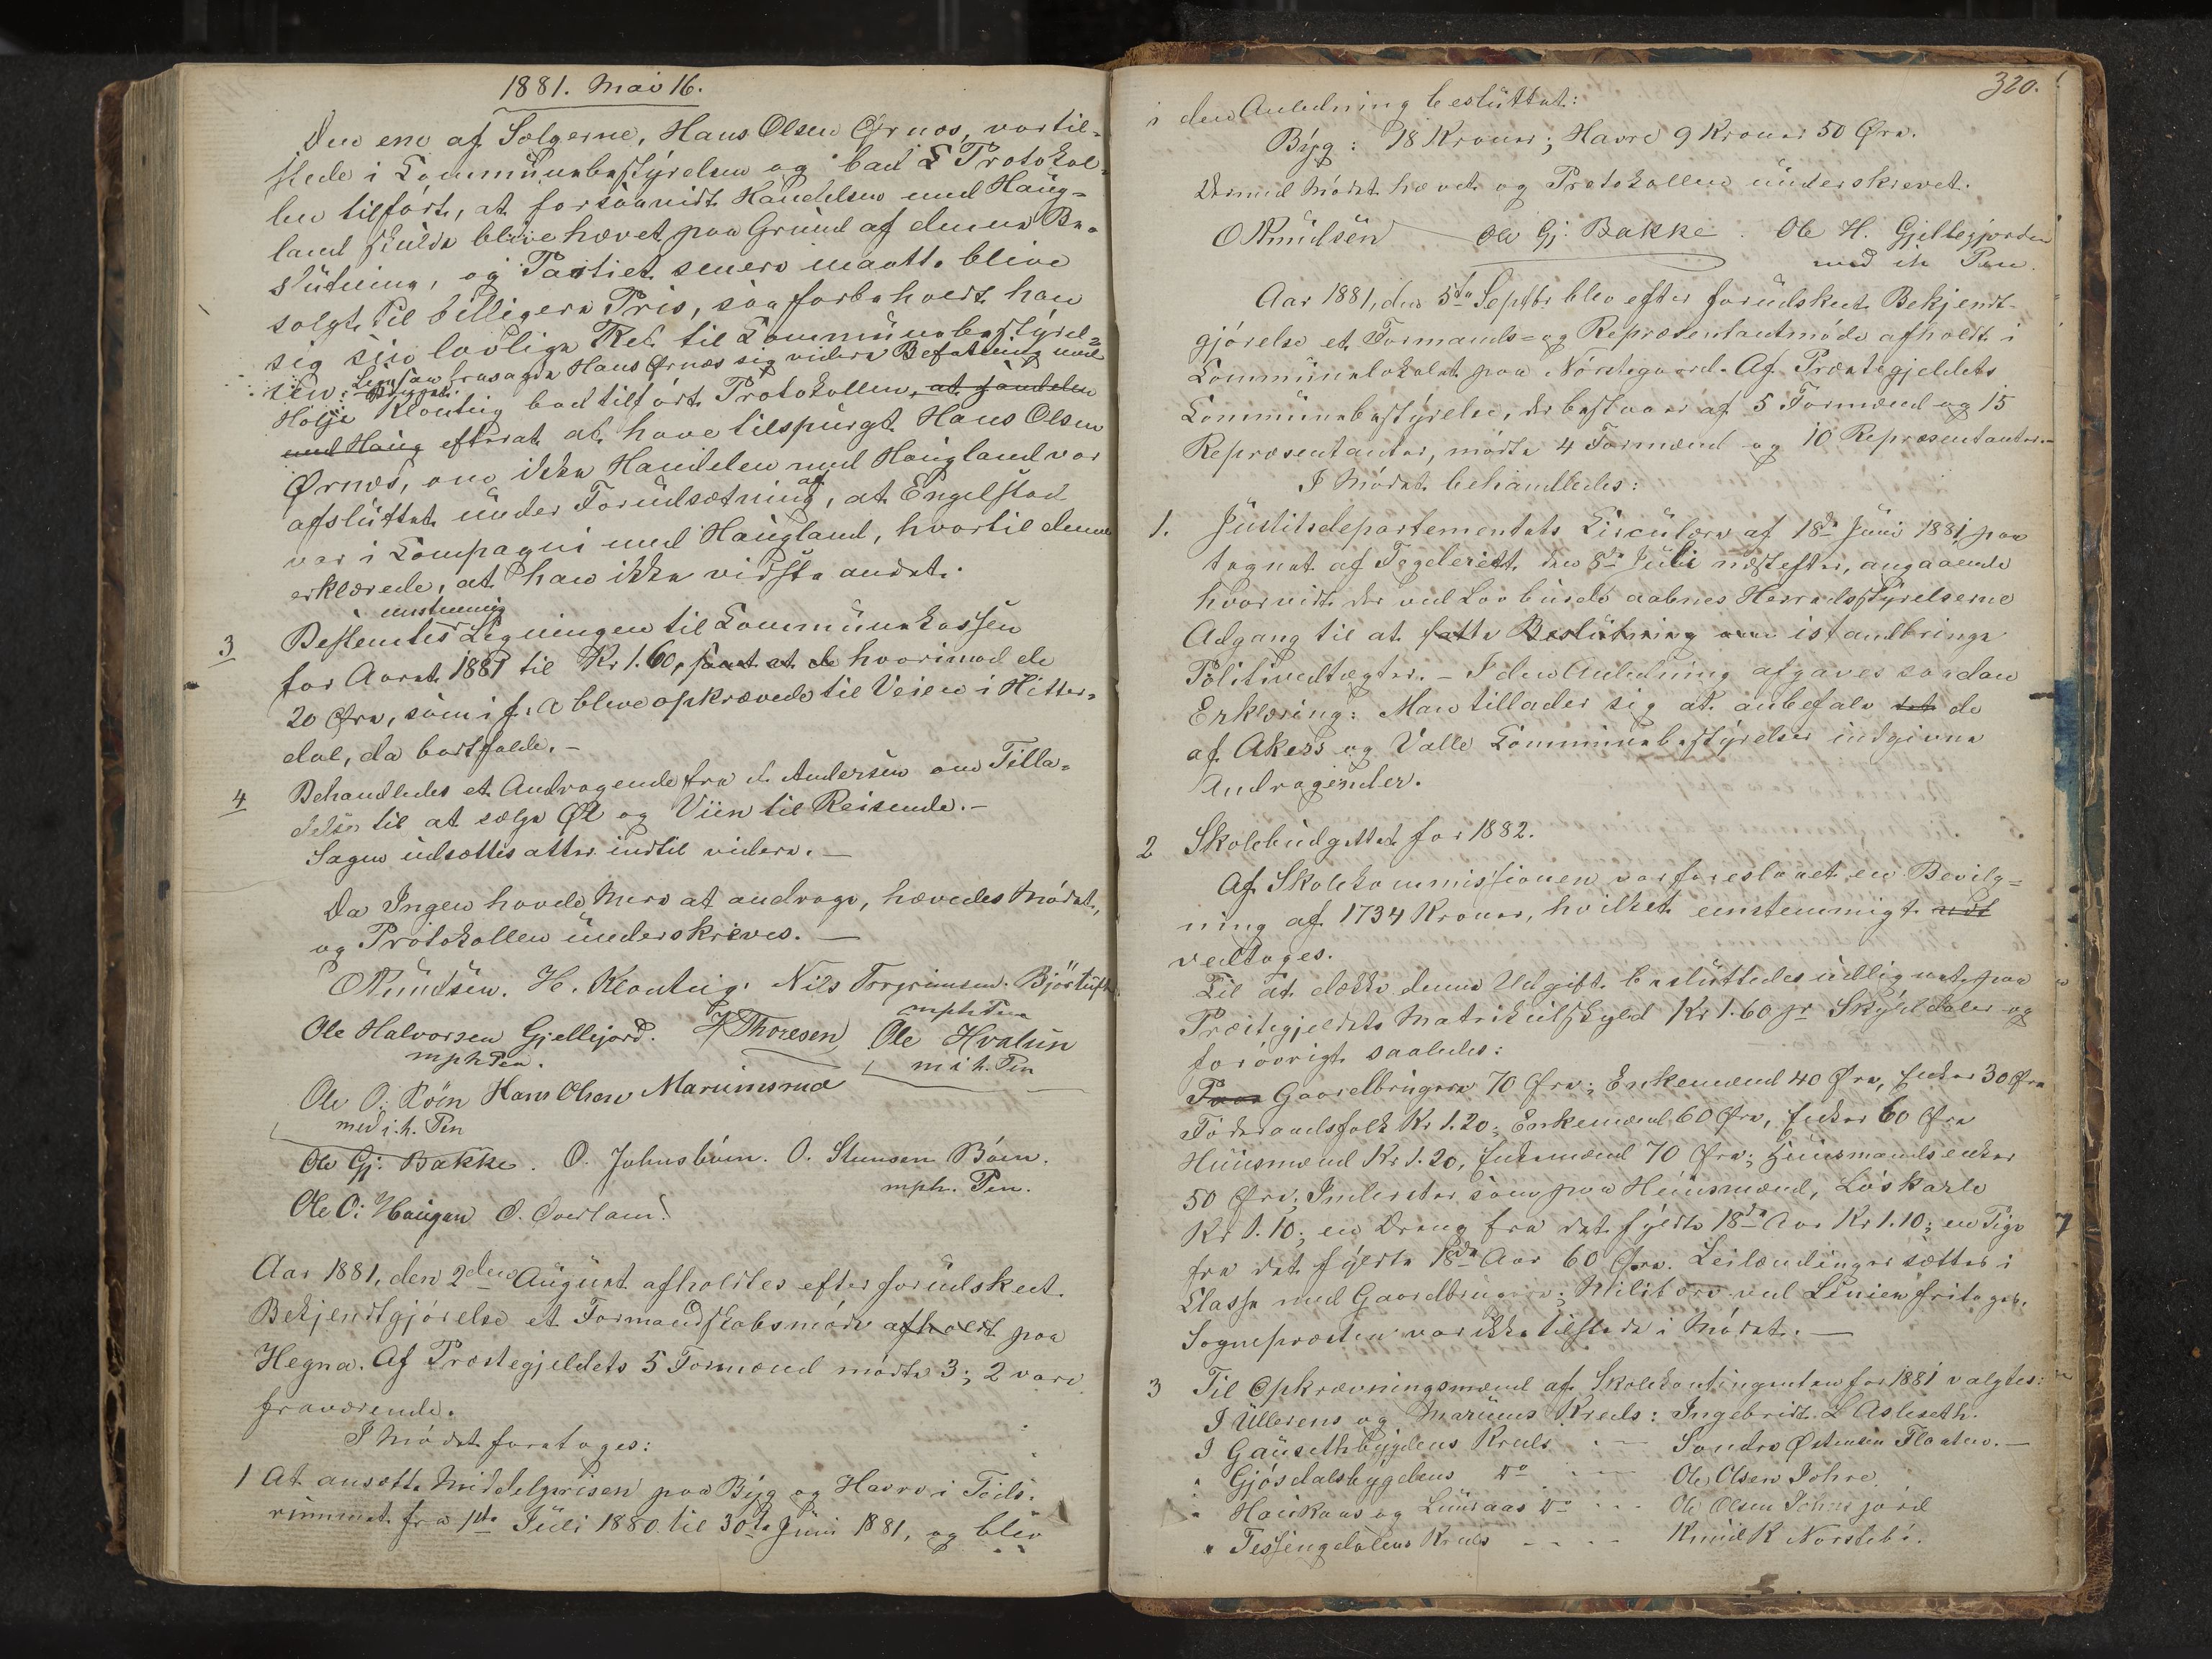 1881. Mai 16.
Den ene af Sælgerne, Hans Olsen Ørnæs, var til-
stede i Communebestyrelsen og bad Protokol-
len tilført, at forsaavidt Handelen med Haug-
land skulde blive hævet paa Grund af denne Be-
slutning, og Partiet senere maatte blive
solgt til billigere Pris, saa forbeholdt han
sig sin lovlige Ret til Communebestyrel-
sen. Ligesaa frasagde Hans Ørnæs sig videre Befatning med
Hølje Klonteig bad tilført Protokollen, at Handelen
med Haug efterat at have tilspurgt Hans Olsen
Ørnæs, om ikke Handelen med Haugland var
afsluttet under Forudsætning af, at Engelstad
var i Compagni med Haugland, hvortil denne
erklærede, at han ikke vidste andet.
enstemmig
3 Bestemtes Ligningen til Communekassen
for Aaret 1881 til Kr 1.60, samt at de hvorimod de
20 Øre, som i f. A bleve opkrævede til Veien i Hitter-
dal, da bortfalde.-
4 Behandledes et Andragende fra A. Andersen om Tilla-
delse til at sælge Øl og Viin til Reisende.-
Sagen udsættes atter indtil videre.-
Da Ingen havde Mere at andrage, hævedes Mødet,
og Protokollen underskrives.-
O Knudsen. H. Klonteig. Nils Torgrimsen Bjørtuft
mph Pen
Ole Halvorsen Gjellejord. H Thoresen Ole Hvalun
mph Pen. m i h. Pen
Ole O. Böen Hans Olsen Marumsrud
med i. h. Pen
Ole Gj. Bakke. O. Johnsböen. O. Stensen Böen.
mph. Pen.
Ole O. Haugan O. Overland.
Aar 1881, den 2den August afholdtes efter forudskeet
Bekjendtgjørelse et Formandskabsmøde afholdt paa
Hegna. Af Præstegjeldets 5 Formænd mødte 3; 2 vare
fraværende.
I Mødet foretoges:
1 At ansætte Middelprisen paa Byg og Havre i Tids-
rummet fra 1ste Juli 1880 til 30te Juni 1881, og blev
320.
i den Anledning besluttet:
Byg: 18 Kroner; Havre 9 Kroner 50 Øre.
Dermed Mødet hævet og Protokollen underskrevet.
O Knudsen Ole Gj. Bakke. Ole H. Gjellegjorden
med ih Pen.
Aar 1881, den 5te Septbr blev efter forudskeet Bekjendt-
gjørelse et Formands- og Repræsentantmøde afholdt i
Communelokalet paa Nordegaard. Af Præstegjeldets
Communebestyrelse, der bestaaer af 5 Formænd og 15
Repræsentanter, mødte 4 Formænd og 10 Repræsentanter.-
I Mødet behandledes:
1. Justitsdepartementets Circulære af 18de Juni 1881, paa
tegnet af Fogderiet den 8de Juli næstefter, angaaende
hvorvidt der ved Lov burde aabnes Herredsstyrelserne
Adgang til at fatte Beslutning om istandbringe
Politivedtægter.- I den Anledning afgaves saadan
Erklæring: Man tillader sig at anbefale det de
af Akers og Valle Communebestyrelser indgivne
Andragender.
2 Skolebudgettet for 1882.
Af Skolekommissionen var foreslaaet en Bevilg-
ning af 1734 Kroner, hvilket enstemmigt vedt
vedtoges.
Til at dække denne Udgift besluttedes udlignet paa
Præstegjeldets Matrikulskyld Kr 1.60 pr Skylddaler og
forøvrigt saaledes:
Paa Gaardbrugere 70 Øre; Enkemænd 40 Øre, Enker 30 Øre
Føderaadsfolk Kr 1.20; Enkemænd 60 Øre, Enker 60 Øre
Huusmænd Kr 1.20, Enkemænd 70 Øre; Huusmandsenker
50 Øre; Inderster som paa Huusmænd, Løskarle
Kr 1.10; en Dreng fra det fyldte 18de Aar Kr 1.10; en Pige
fra det fyldte 18de Aar 60 Øre. Leilændinger sættes i
Classe med Gaardbrugere; Militære ved Linien fritages.
Sognepræsten var ikke tilstede i Mødet.-
3 Til Opkrævningsmænd af Skolekontingenten for 1881 valgtes:
I Ullerens og Marums Kreds: Ingebrigt L Aslaseth.
I Gausethbygdens Kreds - Sondre Østensen Flaaten.-
" Gjøsdalsbygdens Do - Ole Olsen Johre
" Haukaas og Luraas Do - Ole Olsen Johnsjord
" Tessengdalens Kreds - Knud K Norstebø.